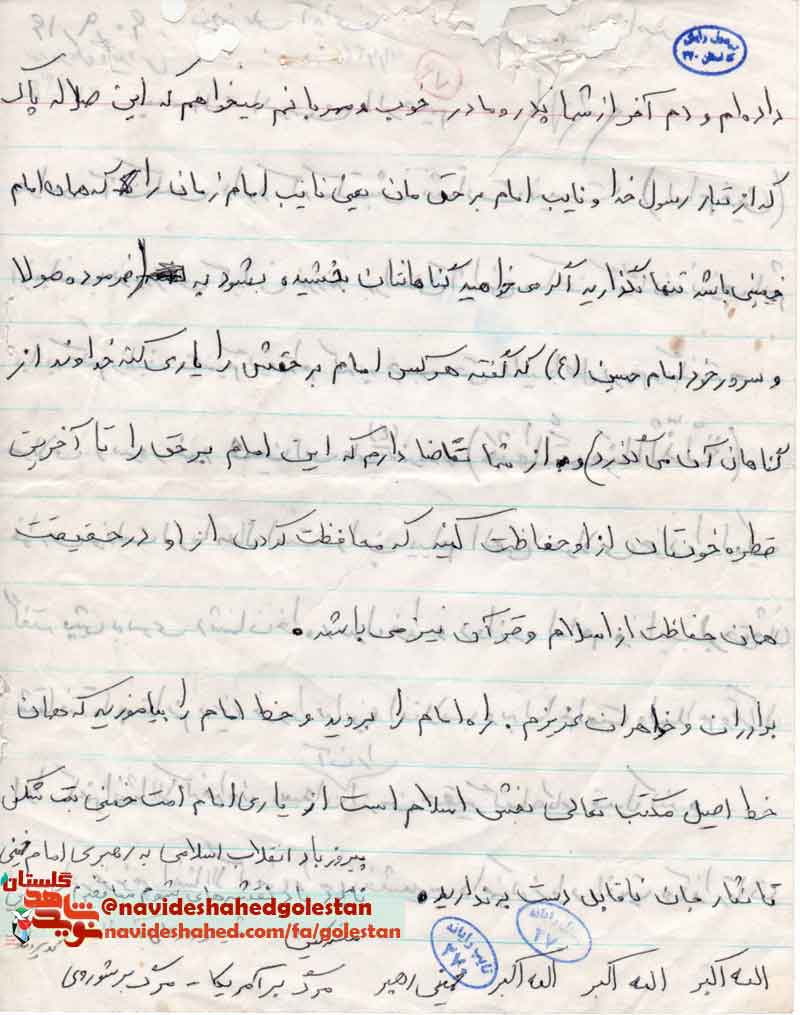 داده‌ام و دم آخر از شما پدر و مادر خوب و مهربانم میخواهم که این صلاله پاک
(که از تبار رسول خدا و نایب امام بر حق مان یعنی نایب امام زمان را که همان امام
خمینی باشد تنها نگذارید اگر می خواهید گناهانتان بخشیده بشود به فرموده مولا
و سرور خود امام حسین (ع) که گفته هرکس امام بر حقش را یاری کند خداوند از
گناهان آن می گذرد) و از شما تقاضا دارم که این امام بر حق را تا آخرین
قطره خونتان از او حفاظت کنید که محافظت کردن از او در حقیقت
همان حفاظت از اسلام و قرآن نیز می باشد.
برادران و خواهران عزیزم. راه امام را بروید و خط امام را بیاموزید که همان
خط اصیل مکتب تعالی بخش اسلام است از یاری امام امت خمینی بت شکن
تا نثار جان ناقابل دست برندارید.
پیروز باد انقلاب اسلامی به رهبری امام خمینی
الله اکبر الله اکبر الله اکبر خمینی رهبر مرگ بر آمریکا - مرگ بر شوروی
نوید شاهد گلستان
@navideshahedgolestan
navideshahed.com/fa/golestan